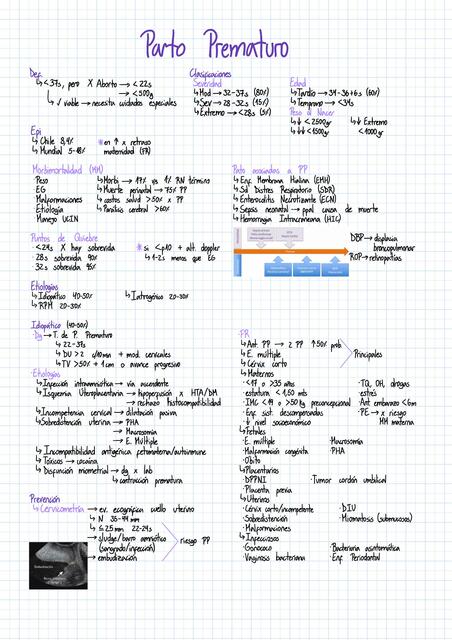 Parto Prematuro
Def.
↳ <37s, pero X Aborto → <22s
→ <500g
↳ √ viable → necesita cuidados especiales
Clasificaciones
Severidad
↳ Mod → 32-37s (80%)
↳ Sev → 28-32s (15%)
↳ Extremo → <28s (5%)
Edad
↳ Tardío → 34-36+6s (60%)
↳ Temprano → <34s
Peso al Nacer
↳ ↓ <2500gr
↳ ↓↓ <1500gr
↳ ↓ Extremo
<1000gr
Epi
↳ Chile 8,4%
↳ Mundial 5-18%
*en ↑ x retraso
maternidad (FR)
Morbimortalidad (MM)
Peso
EG
Malformaciones
Etiología
Manejo UCIN
↳ Morbi → 17% vs 1% RN término
↳ Muerte perinatal → 75% PP
↳ costos salud >50% x PP
↳ Parálisis cerebral >60%
Pato asociadas a PP
↳ Enf. Membrana Hialina (EMH)
↳ Sd Distres Respiratorio (SDR)
↳ Enterocolitis Necrotizante (ECN)
↳ Sepsis neonatal → ppal causa de muerte
↳ Hemorragia Intracraneana (HIC)
Puntos de Quiebre
<24s X hay sobrevida
28s sobrevida 90%
32s sobrevida 95%
*si <p10 + alt. doppler
↳ 1-2s menos que EG
DBP → displasia
broncopulmonar
ROP → retinopatías
Etiologías
↳ Idiopático 40-50%
↳ RPM 20-30%
↳ Iatrogénico 20-30%
Idiopático (40-50%)
·Dg → T. de P. Prematuro
↳ 22-37s
↳ DU >2 c/10min + mod. cervicales
↳ TV >50% + 1cm o avance progresivo
·Etiologías
↳ Infección intraamniótica → vía ascendente
↳ Isquemia Uteroplacentaria → hipoperfusión x HTA/DM
→ rechazo histocompatibilidad
↳ Incompetencia cervical → dilatación pasiva
↳ Sobredistensión uterina → PHA
→ Macrosomía
→ E. Múltiple
↳ Incompatibilidad antigénica fetomaterna/autoinmune
↳ Tóxicos → cocaína
↳ Disfunción miometrial → dg x lab
↳ contracción prematura
·FR
↳ Ant. PP → 2 PP ↑50% prob.
↳ E. múltiple
↳ Cérvix corto
Principales
↳ Maternos
·<17 o >35 años
·estatura <1,50 mts
·IMC <19 o >50kg preconcepcional
·Enf. sist. descompensadas
·↓ nivel socioeconómico
·TQ, OH, drogas
·estrés
·Ant embarazo <6m
·PE → x riesgo
MM materna
↳ Fetales
·E. múltiple
·Malformación congénita
·Óbito
·Macrosomía
·PHA
↳ Placentarios
·DPPNI
·Placenta previa
·Tumor cordón umbilical
↳ Uterinos
·Cérvix corto/incompetente
·Sobredistensión
·Malformaciones
·DIU
·Miomatosis (submucosos)
↳ Infecciosos
·Gonococo
·Vaginosis bacteriana
·Bacteriuria asintomática
·Enf. Periodontal
Prevención
↳ Cervicometría → ev. ecográfica cuello uterino
↳ N 35-44 mm
↳ ≤25mm 22-24s
→ sludge/barro amniótico
(sangrado/infección)
→ embudización
riesgo PP